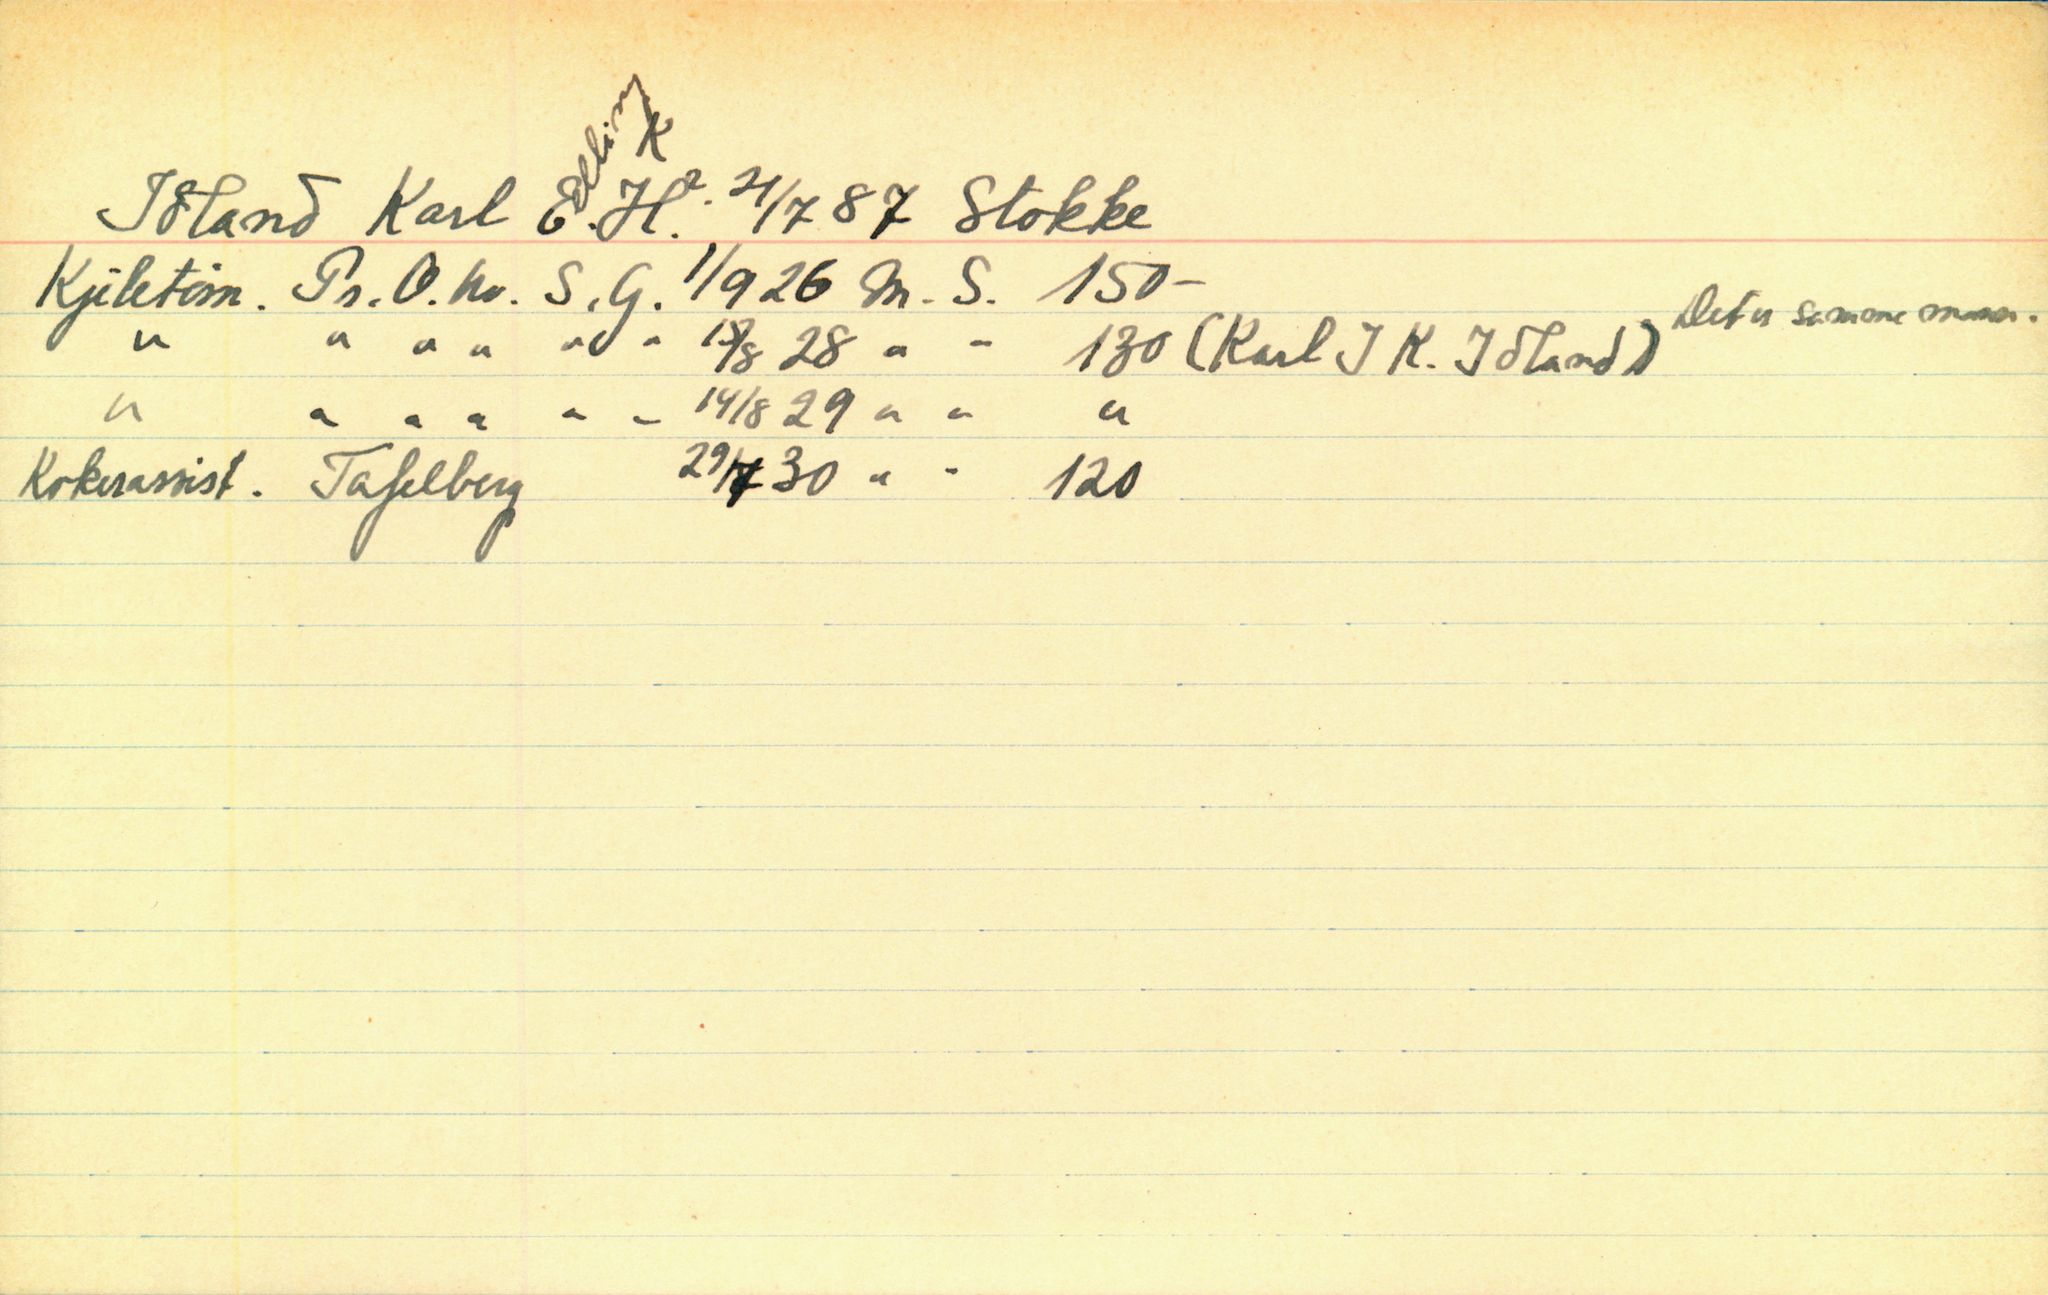 Elling K
Idland Karl E. H. 21/7 87 Stokke
Kjeletøm. Pr. O. Av. S. G. 1/9 26 M. S. 150-
" " " " " " 18/8 28 " " 130 (Karl I K. Idland) Det er samme mann.
" " " " " " 14/8 29 " " "
Kokerassist. Tafelberg 29/7 30 " " 120